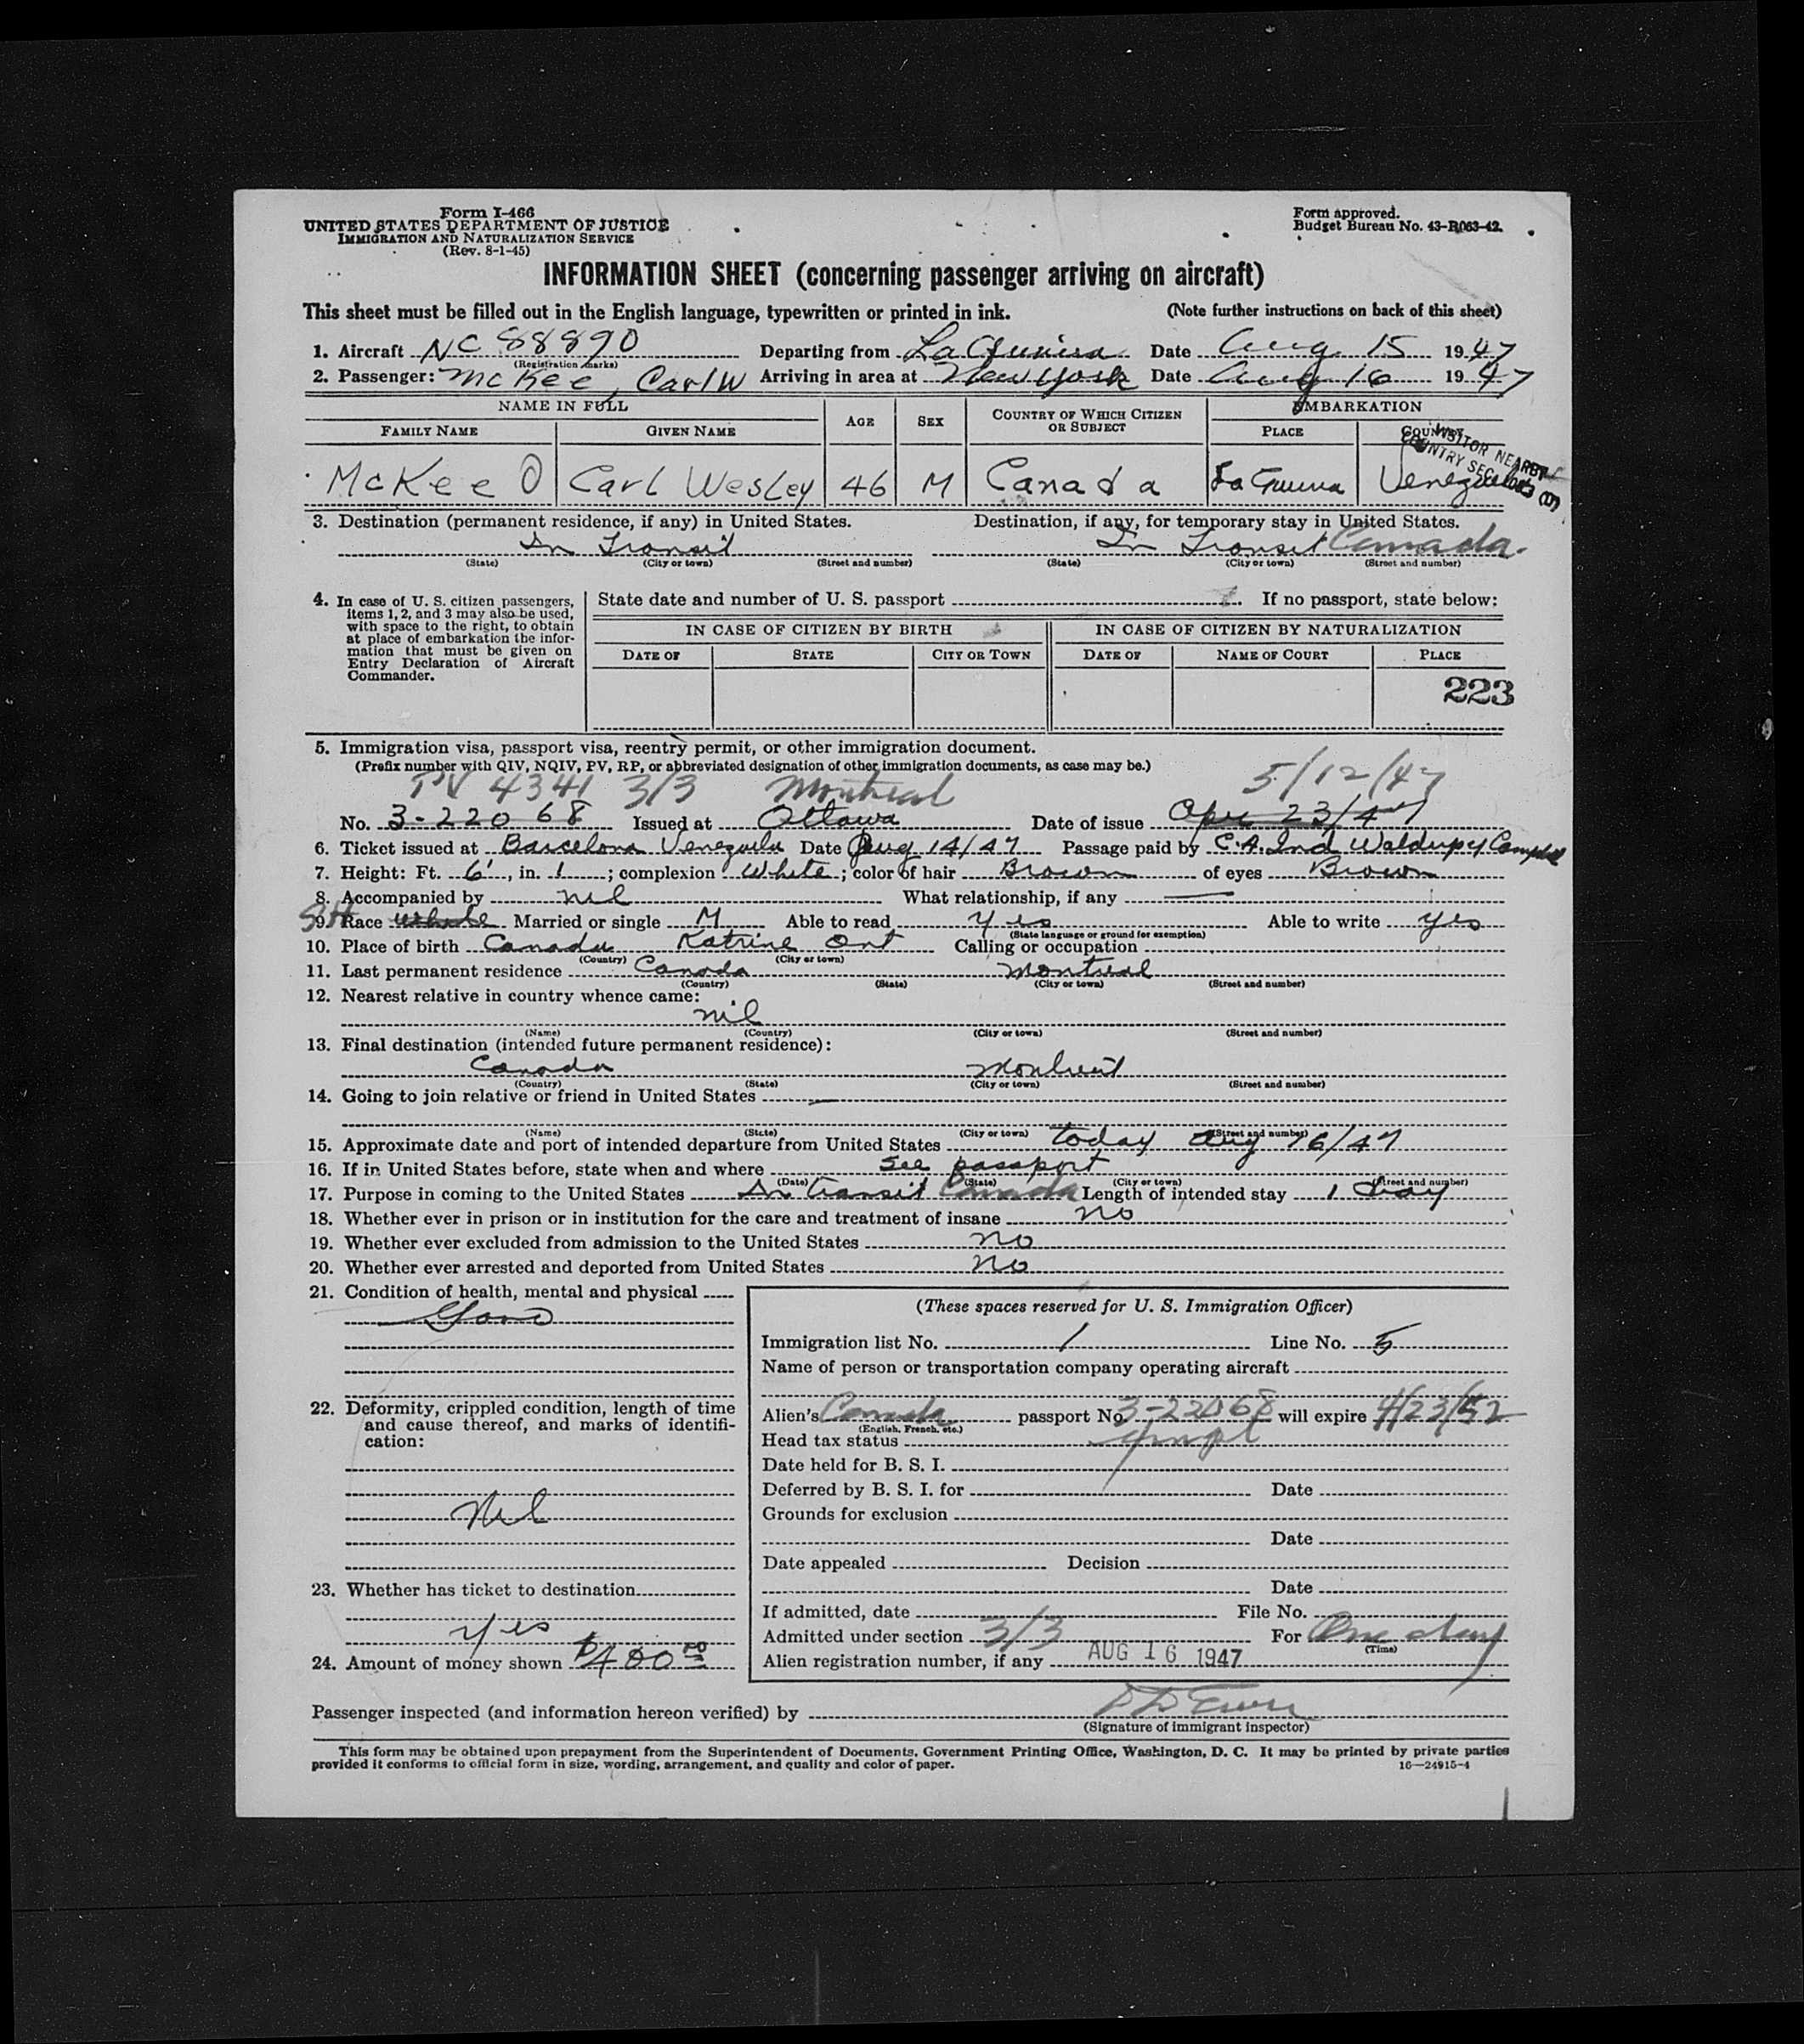 Form I-466
UNITED STATES DEPARTMENT OF JUSTICE
IMMIGRATION AND NATURALIZATION SERVICE
(Rev. 8-1-45)
Form approved.
Budget Bureau No. 43-R063-42.
INFORMATION SHEET (concerning passenger arriving on aircraft)
This sheet must be filled out in the English language, typewritten or printed in ink. (Note further instructions on back of this sheet)
1. Aircraft NC 88890 Departing from La Guaira Date Aug 15 1947
(Registration marks)
2. Passenger: McKee, Carl W Arriving in area at New York Date Aug 16 1947
NAME IN FULL AGE SEX COUNTRY OF WHICH CITIZEN OR SUBJECT EMBARKATION
FAMILY NAME GIVEN NAME PLACE COUNTRY
VISITOR NEARBY
COUNTRY SEC.
McKee Carl Wesley 46 M Canada La Guaira Venezuela
3. Destination (permanent residence, if any) in United States. Destination, if any, for temporary stay in United States.
In Transit In Transit Canada.
(State) (City or town) (Street and number) (State) (City or town) (Street and number)
4. In case of U. S. citizen passengers, items 1, 2, and 3 may also be used, with space to the right, to obtain at place of embarkation the information that must be given on Entry Declaration of Aircraft Commander.
State date and number of U. S. passport If no passport, state below:
IN CASE OF CITIZEN BY BIRTH IN CASE OF CITIZEN BY NATURALIZATION
DATE OF STATE CITY OR TOWN DATE OF NAME OF COURT PLACE
223
5. Immigration visa, passport visa, reentry permit, or other immigration document.
(Prefix number with QIV, NQIV, PV, RP, or abbreviated designation of other immigration documents, as case may be.)
PV 4341 3/3 Montreal 5/12/47
No. 3-22068 Issued at Ottawa Date of issue Apr 23/47
6. Ticket issued at Barcelona Venezuela Date Aug 14/47 Passage paid by C.A. Ind
7. Height: Ft. 6', in. 1; complexion White; color of hair Brown of eyes Brown
8. Accompanied by nil What relationship, if any —
9. Race White Married or single M Able to read yes Able to write yes
(State language or ground for exemption)
10. Place of birth Canada Katrine Ont Calling or occupation
(Country) (City or town)
11. Last permanent residence Canada Montreal
(Country) (State) (City or town) (Street and number)
12. Nearest relative in country whence came:
nil
(Name) (Country) (City or town) (Street and number)
13. Final destination (intended future permanent residence):
Canada Montreal
(Country) (State) (City or town) (Street and number)
14. Going to join relative or friend in United States —
(Name) (State) (City or town) (Street and number)
15. Approximate date and port of intended departure from United States today Aug 16/47
16. If in United States before, state when and where see passport
(Date) (State) (City or town) (Street and number)
17. Purpose in coming to the United States In transit Canada Length of intended stay 1 day
18. Whether ever in prison or in institution for the care and treatment of insane no
19. Whether ever excluded from admission to the United States no
20. Whether ever arrested and deported from United States no
21. Condition of health, mental and physical
Good
22. Deformity, crippled condition, length of time and cause thereof, and marks of identification:
Nil
23. Whether has ticket to destination
yes
24. Amount of money shown $400.00
(These spaces reserved for U. S. Immigration Officer)
Immigration list No. 1 Line No. 5
Name of person or transportation company operating aircraft
Alien's Canada passport No. 3-22068 will expire 4/23/52
(English, French, etc.)
Head tax status
Date held for B. S. I.
Deferred by B. S. I. for Date
Grounds for exclusion
Date
Date appealed Decision
Date
If admitted, date File No.
Admitted under section 3/3 For One day
(Time)
Alien registration number, if any AUG 16 1947
Passenger inspected (and information hereon verified) by
(Signature of immigrant inspector)
This form may be obtained upon prepayment from the Superintendent of Documents, Government Printing Office, Washington, D. C. It may be printed by private parties
provided it conforms to official form in size, wording, arrangement, and quality and color of paper. 16—24915-4